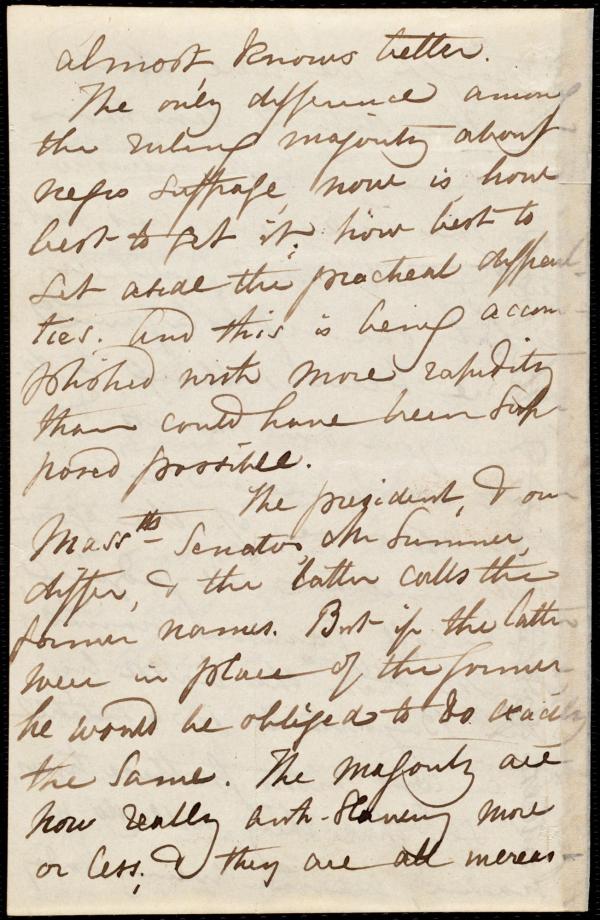 almost, knows better.
The only difference among
the ruling majority about
negro suffrage, now is, how
best to get it; how best to
set aside the practical difficul-
ties. And this is being accom-
plished with more rapidity
than could have been sup-
posed possible.
The president, & our
Masstts Senator, Mr Sumner,
differ, & the latter calls the
former names. But if the latter
were in place of the former
he would be obliged to do exactly
the same. The majority are
now really anti-Slavery more
or less; & they are all increas-